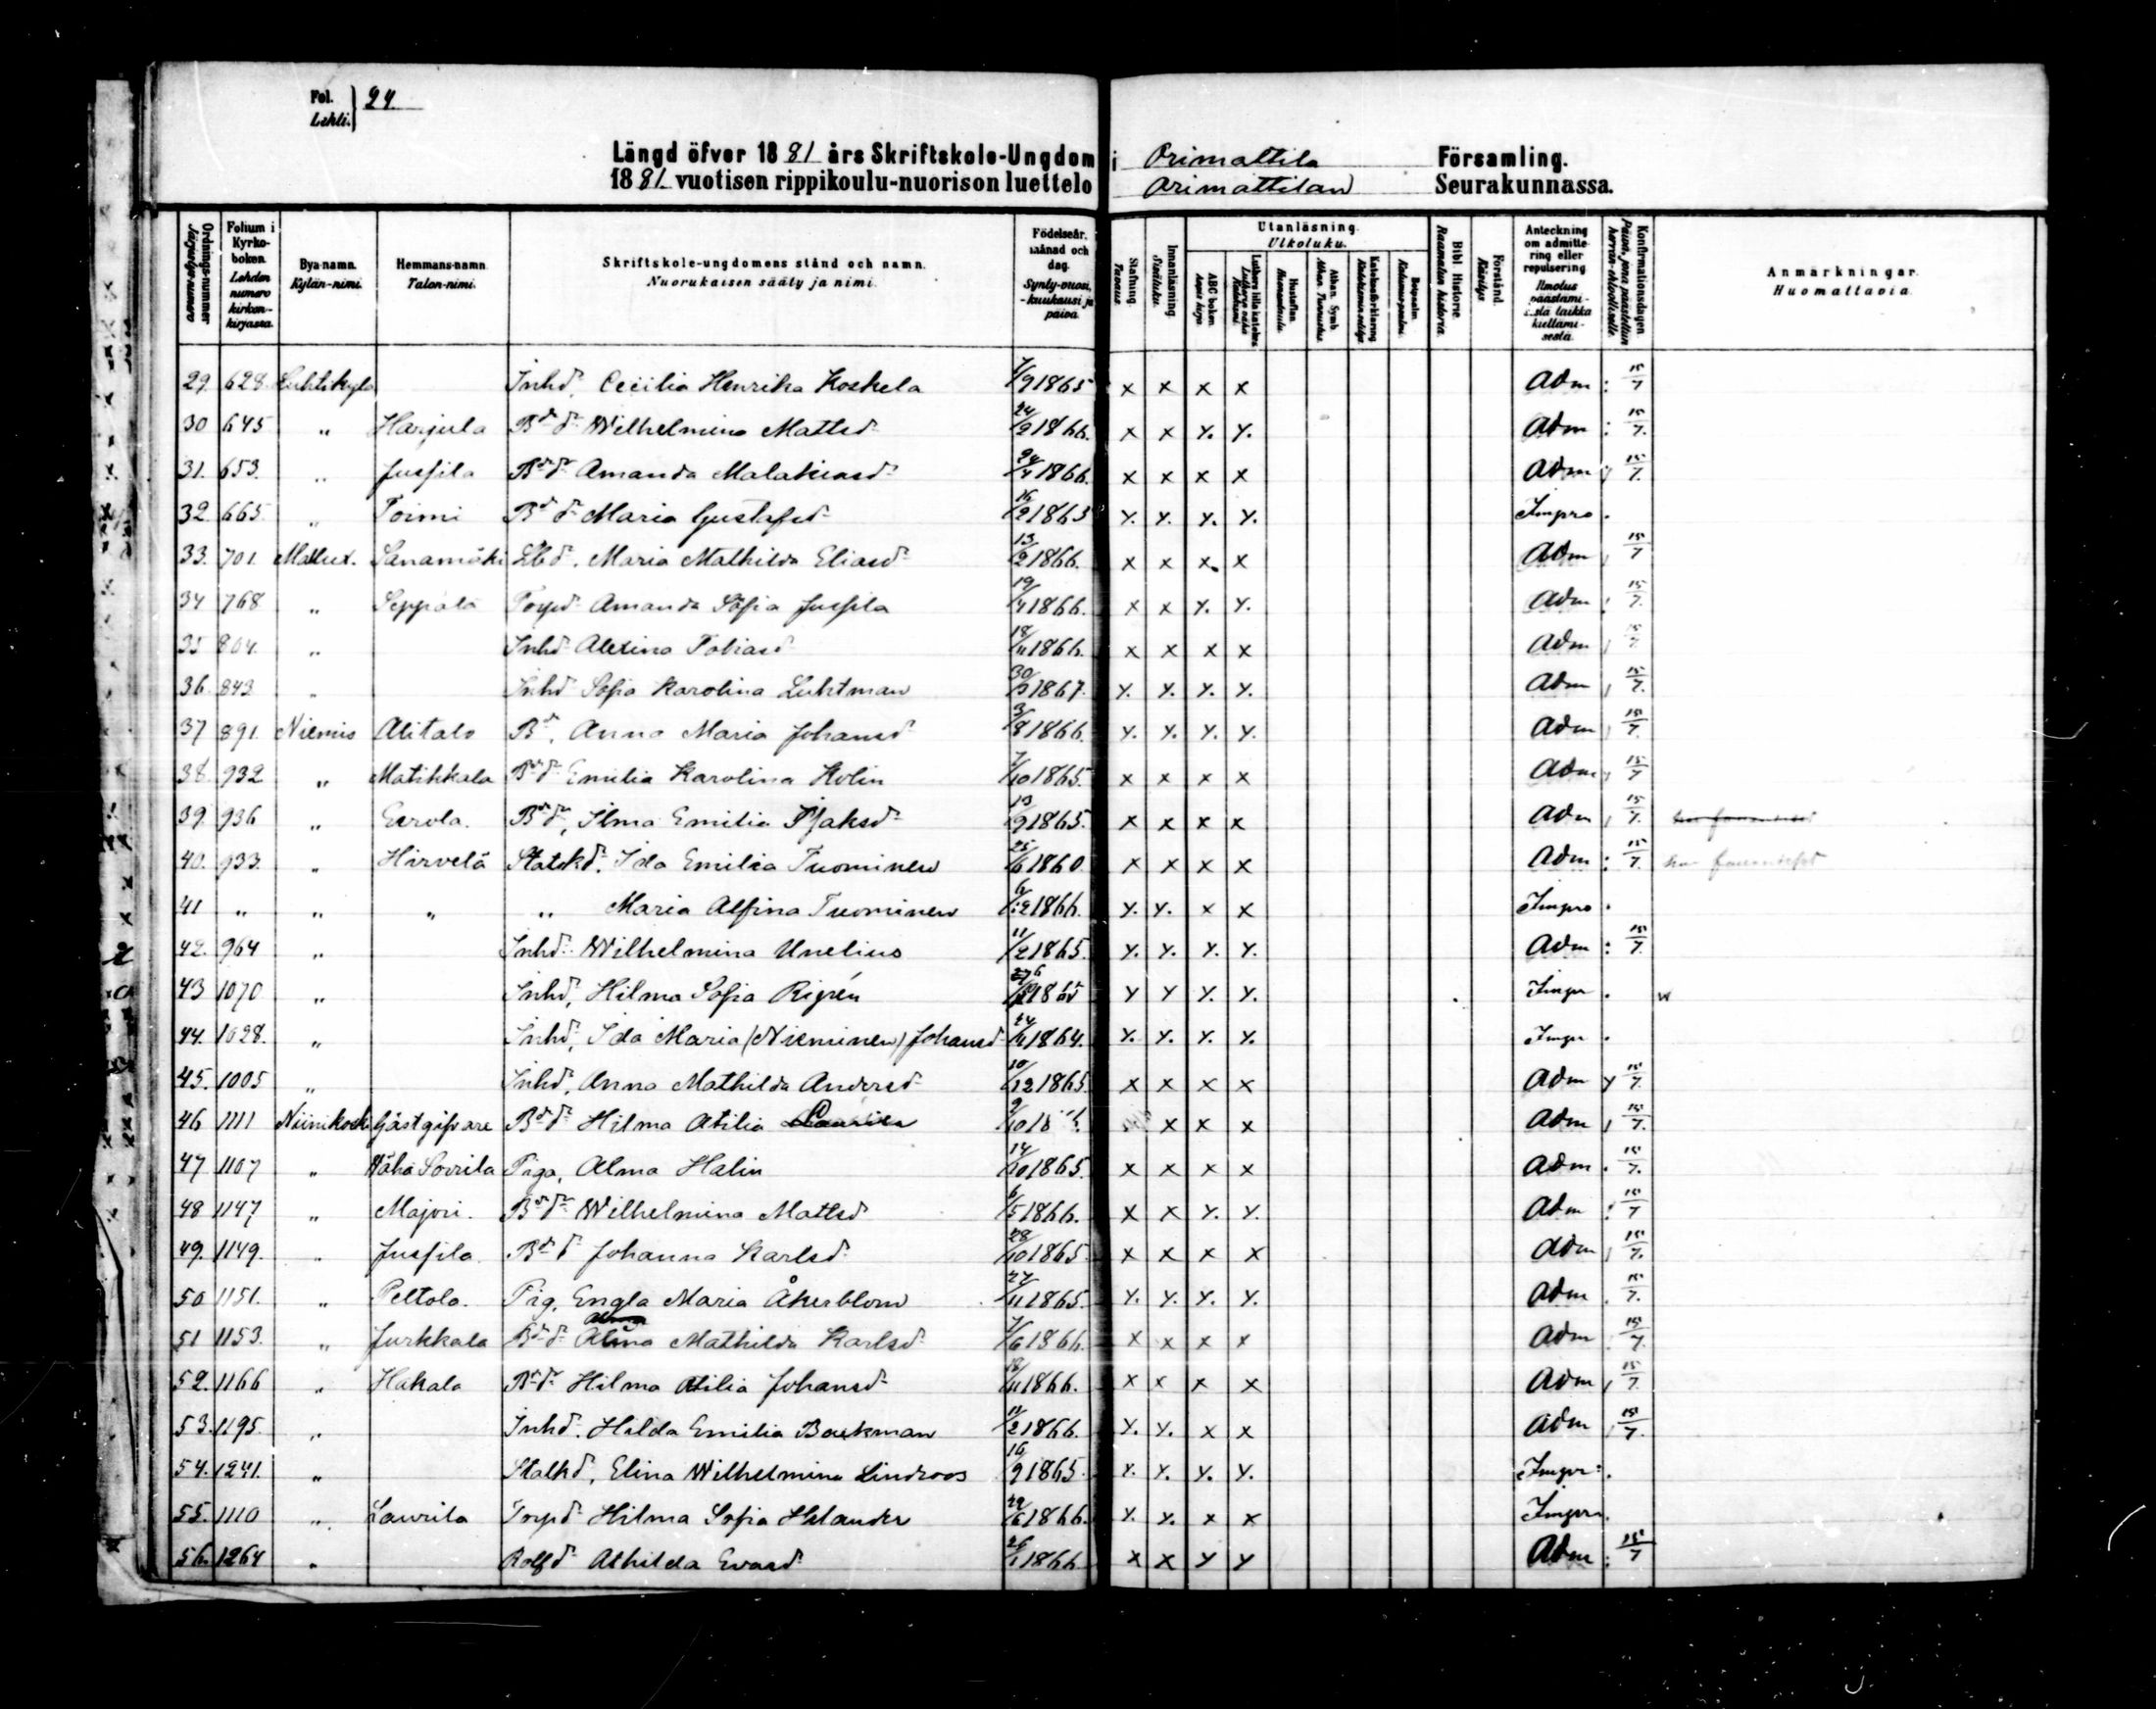 Fol. Lehti. } 24
Längd öfver 1881 års Skriftskole-Ungdom i Orimattila Församling.
1881 vuotisen rippikoulu-nuorison luettelo Orimattilan Seurakunnassa.
Ordnings-nummer Järjestys-numero | Folium i Kyrko-boken. Lehden numero kirkon-kirjassa. | Bya-namn. Kylän-nimi. | Hemmans-namn. Talon-nimi. | Skriftskole-ungdomens stånd och namn. Nuorukaisen sääty ja nimi. | Födelseår, månad och dag. Synty-vuosi, -kuukausi ja päivä | Stafning. Tavaus | Innanläsning Sisäluku. | Utanläsning. Ulkoluku. | ABC boken. Aapis kirja. | Luthers lilla kateches. | Hustaflan. Huoneentaulu. | Athan. Symb. Athan. Tunnustus. | Katekesförklaring | Botpsalm. Katumus-psalmi. | Bibl Historie. Raamatun historia. | Förstånd. Käsitys | Anteckning om admittering eller repulsering | Konfirmationsdagen. | Anmärkningar. Huomattavia.
29. 628. Luhtikylä Inhd. Cecilia Henrika Koskela 7/9 1865 x x x x Adm : 15/7
30 645 " Harjula Bdr. Wilhelmina Mattsd. 24/2 1866. x x y. y. Adm : 15/7.
31. 653. " Jussila Bdr. Amanda Malakiasd. 24/4 1866. x x x x Adm 15/7.
32. 665. " Toimi Bdr. Maria Gustafsd. 16/2 1863 y. y. y. y. Impro.
33. 701. Mallux. Sanamäki Lbd. Maria Mathilda Eliasd. 13/2 1866. x x x x Adm 15/7
34 768 " Seppälä Torpd. Amanda Sofia Jussila 19/4 1866. x x y. y. Adm 15/7.
35 804. " Inhd. Alexina Tobiasd. 18/11 1866. x x x x Adm 15/7
36. 843 " Inhd. Sofia Karolina Luhtman 30/3 1867. y. y. y. y. Adm 15/7.
37 891. Niemis Alitalo Bd. Anna Maria Johansd. 3/8 1866. y. y. y. y. Adm 15/7.
38. 932 " Matikkala Bdr. Emilia Karolina Kolin 7/10 1865. x x x x Adm 15/7
39. 936 " Eerola. Bdr. Ilma Emilia Isaksd. 13/9 1865. x x x x Adm 15/7.
40. 933. " Hirvelä Statckd. Ida Emilia Tuominen 25/6 1860. x x x x Adm : 15/7.
41 " " " " Maria Alfina Tuominen 6/12 1866. y. y. x x Impro.
42. 964 " Inhd. Wilhelmina Unelius 11/2 1865. y. y. y. y. Adm : 15/7.
43 1070 " Inhd. Hilma Sofia Rigrén y y y. y. Impr.
44. 1028. " Inhd. Ida Maria (Nieminen) Johansd. 24/4 1864. y. y. y. y. Impr.
45. 1005 " Inhd. Anna Mathilda Andersd. 10/12 1865. x x x x Adm y 15/7.
46 1111 Niinikoski Gästgifvare Bdr. Hilma Atilia x x x Adm 15/7.
47 1107 " Wähä Sorrila Piga, Alma Halin 14/10 1865. x x x x Adm. 15/7.
48 1147 " Majori. Bdr. Wilhelmina Mattsd. 6/5 1866. x x y. y. Adm 15/7
49. 1149. " Jussila Bdr. Johanna Karlsd. 28/10 1865. x x x x Adm 15/7.
50 1151. " Peltola. Pig. Engla Maria Åkerblom 27/11 1865. y. y. y. y. Adm. 15/7.
51 1153. " Jurkkala Bdr. Alma Mathilda Karlsd. 7/6 1866. x x x x Adm 15/7.
52. 1166 " Hakala Bdr. Hilma Atilia Johansd. 18/11 1866. x x x x Adm 15/7.
53. 1195. " Inhd. Hilda Emilia Backman 11/2 1866. y. y. x x Adm 15/7.
54. 1241. " Stalkd. Elina Wilhelmina Lindroos 16/9 1865. y. y. y. y. Impr:.
55. 1110 " Laurila Torpd. Hilma Sofia Helander 29/6 1866. y. y. x x Impr.
56. 1264 " Rolfd. Athilda Evasd. 26/1 1866 x x y y Adm : 15/7